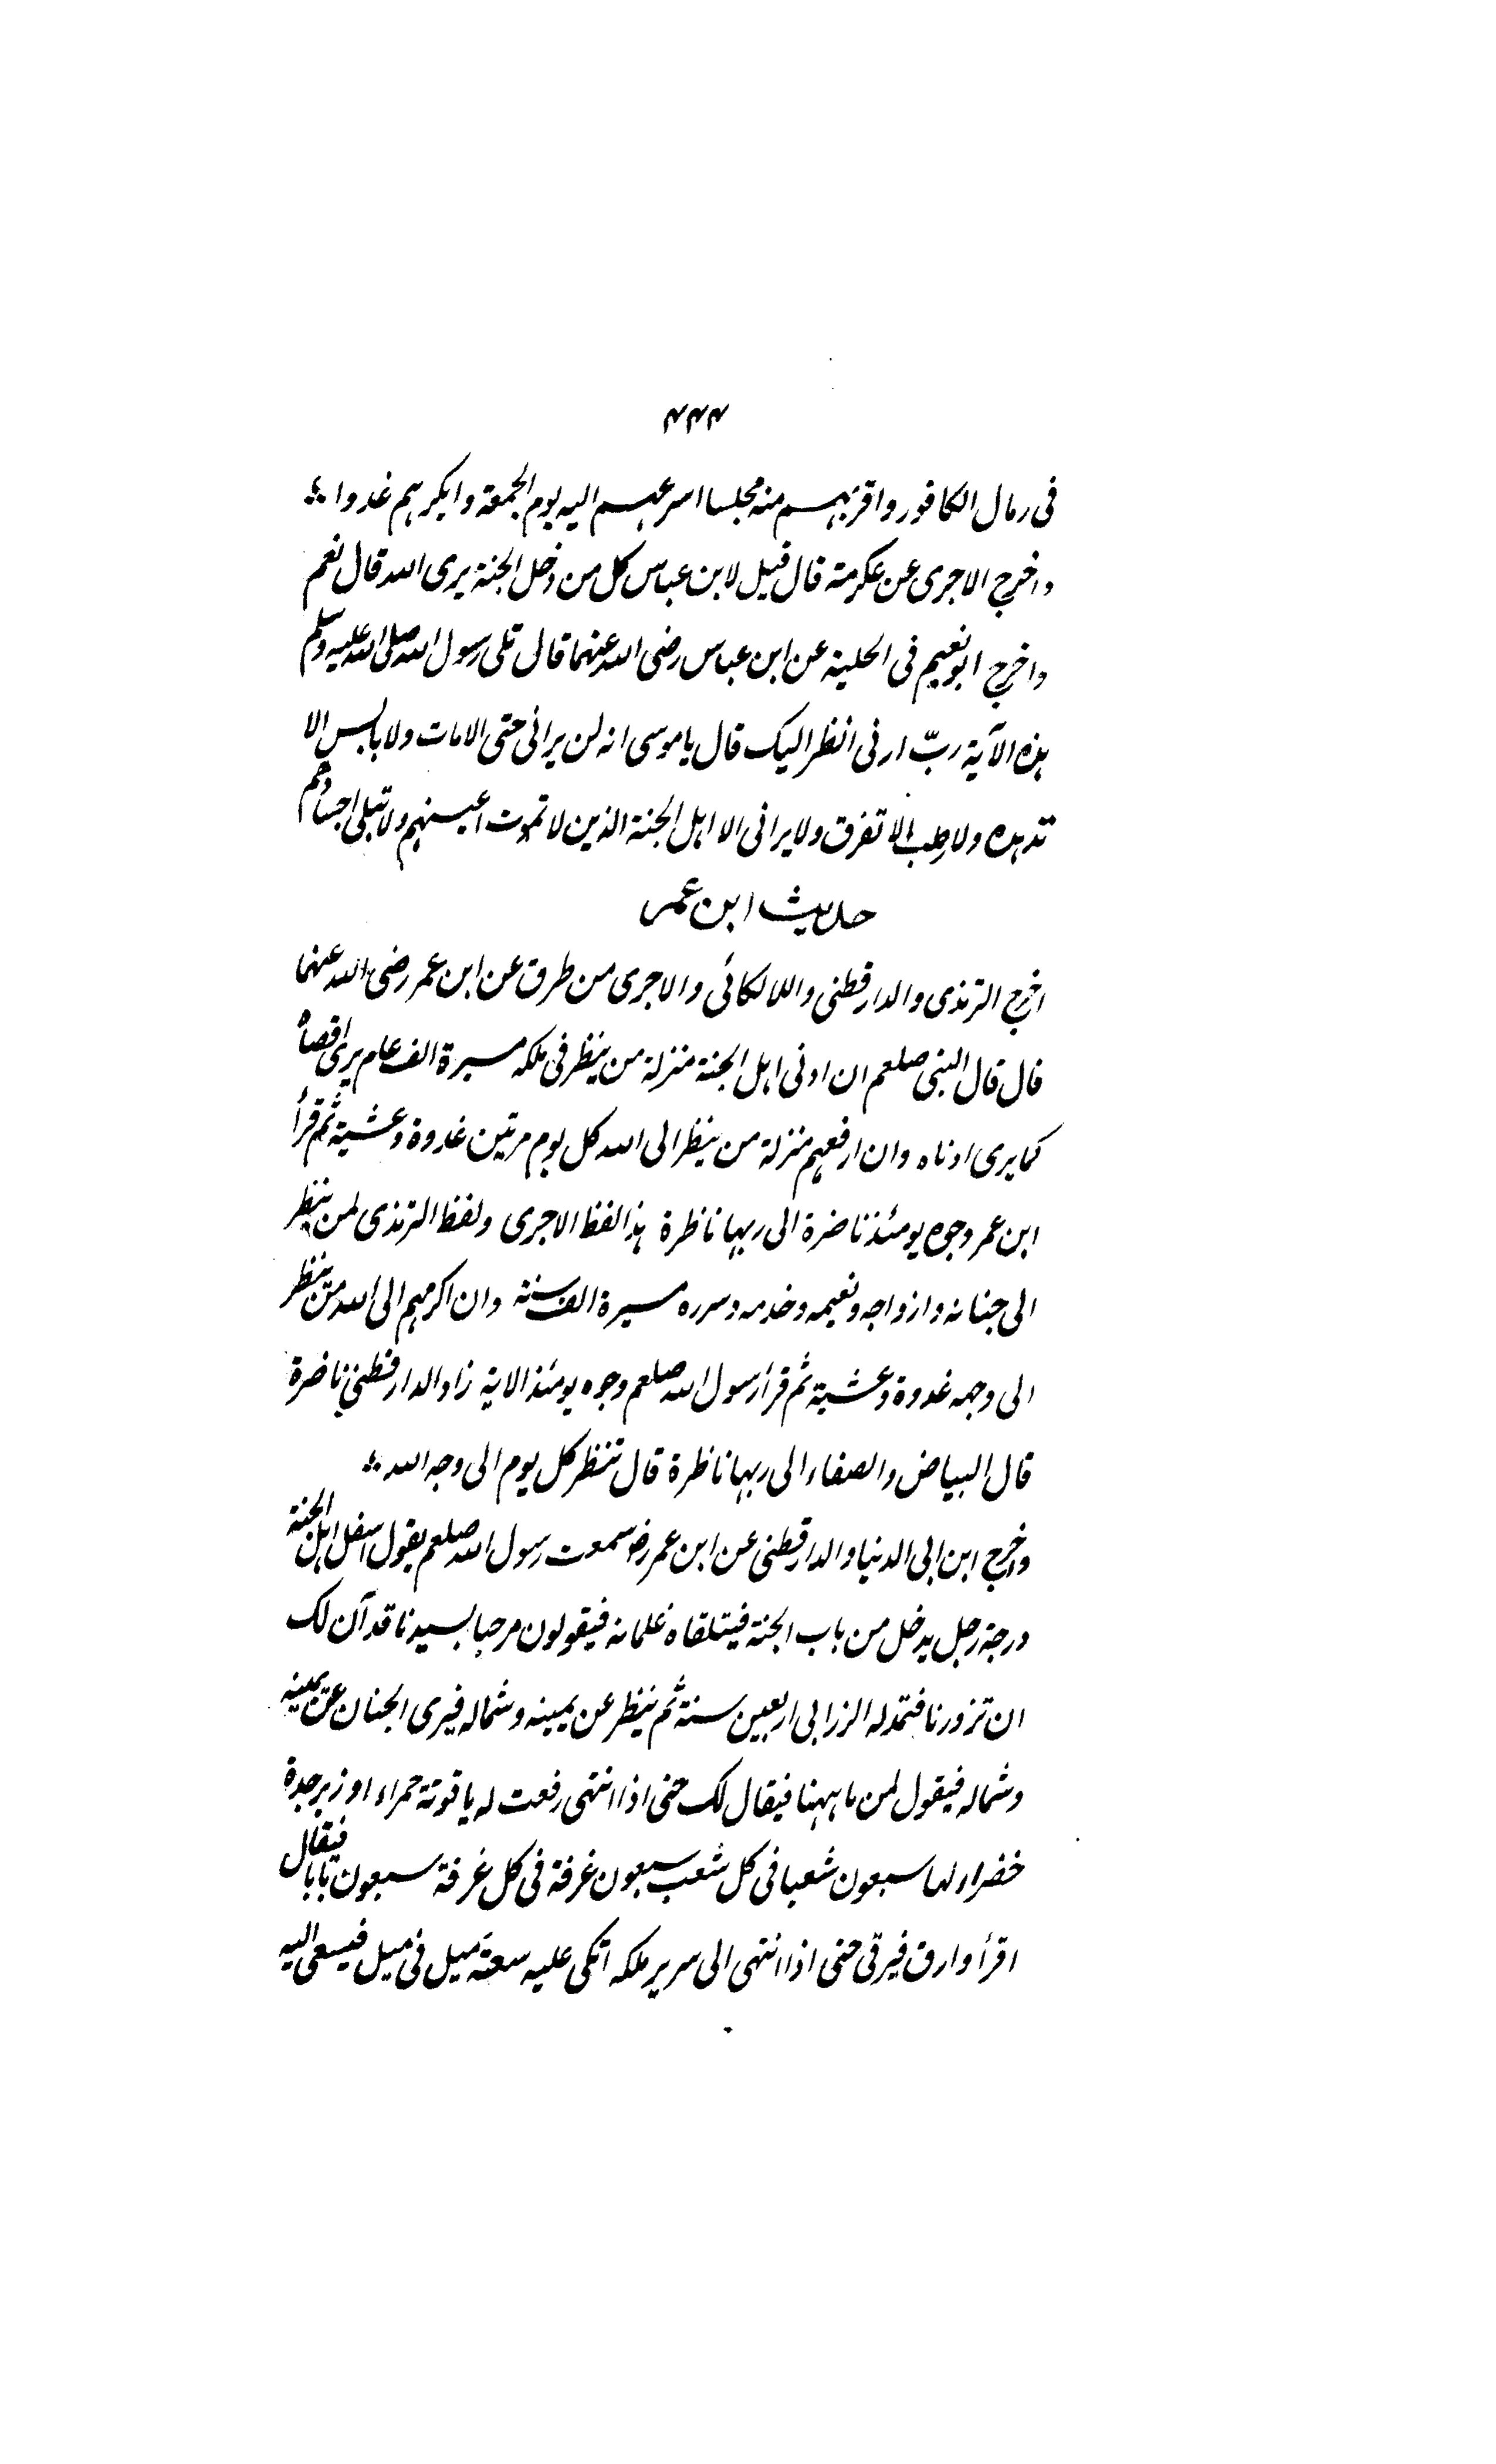 ۴۴۴
فی رمال الکافور واقربہم منہ مجلسا اسرعہم الیہ یوم الجمعة وابکرہم غدوا ؛
واخرج الاجری عن عکرمة قال قیل لابن عباس کل من دخل الجنة یری اللہ قال نعم
واخرج ابونعیم فی الحلیة عن ابن عباس رضی اللہ عنہما قال تلی رسول اللہ صلی اللہ علیہ وسلم
ہذہ الآیة ربّ ارنی انظر الیک قال یا موسی انہ لن یرانی حتی الامات ولا یابس الا
تدہدہ ولا رطب الا تفرق ولا یرانی الا اہل الجنة الذین لا تموت اعینہم ولا تبلی اجسادہم
حدیث ابن عمر
اخرج الترمذی والدارقطنی واللالکائی والاجری من طرق عن ابن عمر رضی اللہ عنہما
قال قال النبی صلعم ان ادنی اہل الجنة منزلة من ینظر فی ملکہ مسیرة الف عام یری اقصاہ
کما یری ادناہ وان ارفعہم منزلة من ینظر الی اللہ کل یوم مرتین غدوة وعشیة ثم قرأ
ابن عمر وجوہ یومئذ ناضرة الی ربہا ناظرة ہذا لفظ الاجری ولفظ الترمذی لمن ینظر
الی جنانہ وازواجہ ونعیمہ وخدمہ وسررہ مسیرة الف سنة وان اکرمہم الی اللہ من ینظر
الی وجہہ غدوة وعشیة ثم قرأ رسول اللہ صلعم وجوہ یومئذ الایة زاد الدارقطنی ناضرة
قال البیاض والصفاء الی ربہا ناظرة قال تنظر کل یوم الی وجہ اللہ ؛
واخرج ابن ابی الدنیا والدارقطنی عن ابن عمر رض سمعت رسول اللہ صلعم یقول اسفل اہل الجنة
درجة رجل یدخل من باب الجنة فیتلقاہ غلمانہ فیقولون مرحبا بسیدنا قد آن لک
ان تزورنا فتمد لہ الزرابی اربعین سنة ثم ینظر عن یمینہ وشمالہ فیری الجنان عن یمینہ
وشمالہ فیقول لمن ما ہہنا فیقال لک حتی اذا انتہی رفعت لہ یاقوتة حمراء او زبرجدة
خضراء لہا سبعون شعبا فی کل شعب سبعون غرفة فی کل غرفة سبعون بابا فیقال
اقرأ وارق فیرقی حتی اذا انتہی الی سریر ملکہ اتکی علیہ سعتہ میل فی میل فیسعی الیہ